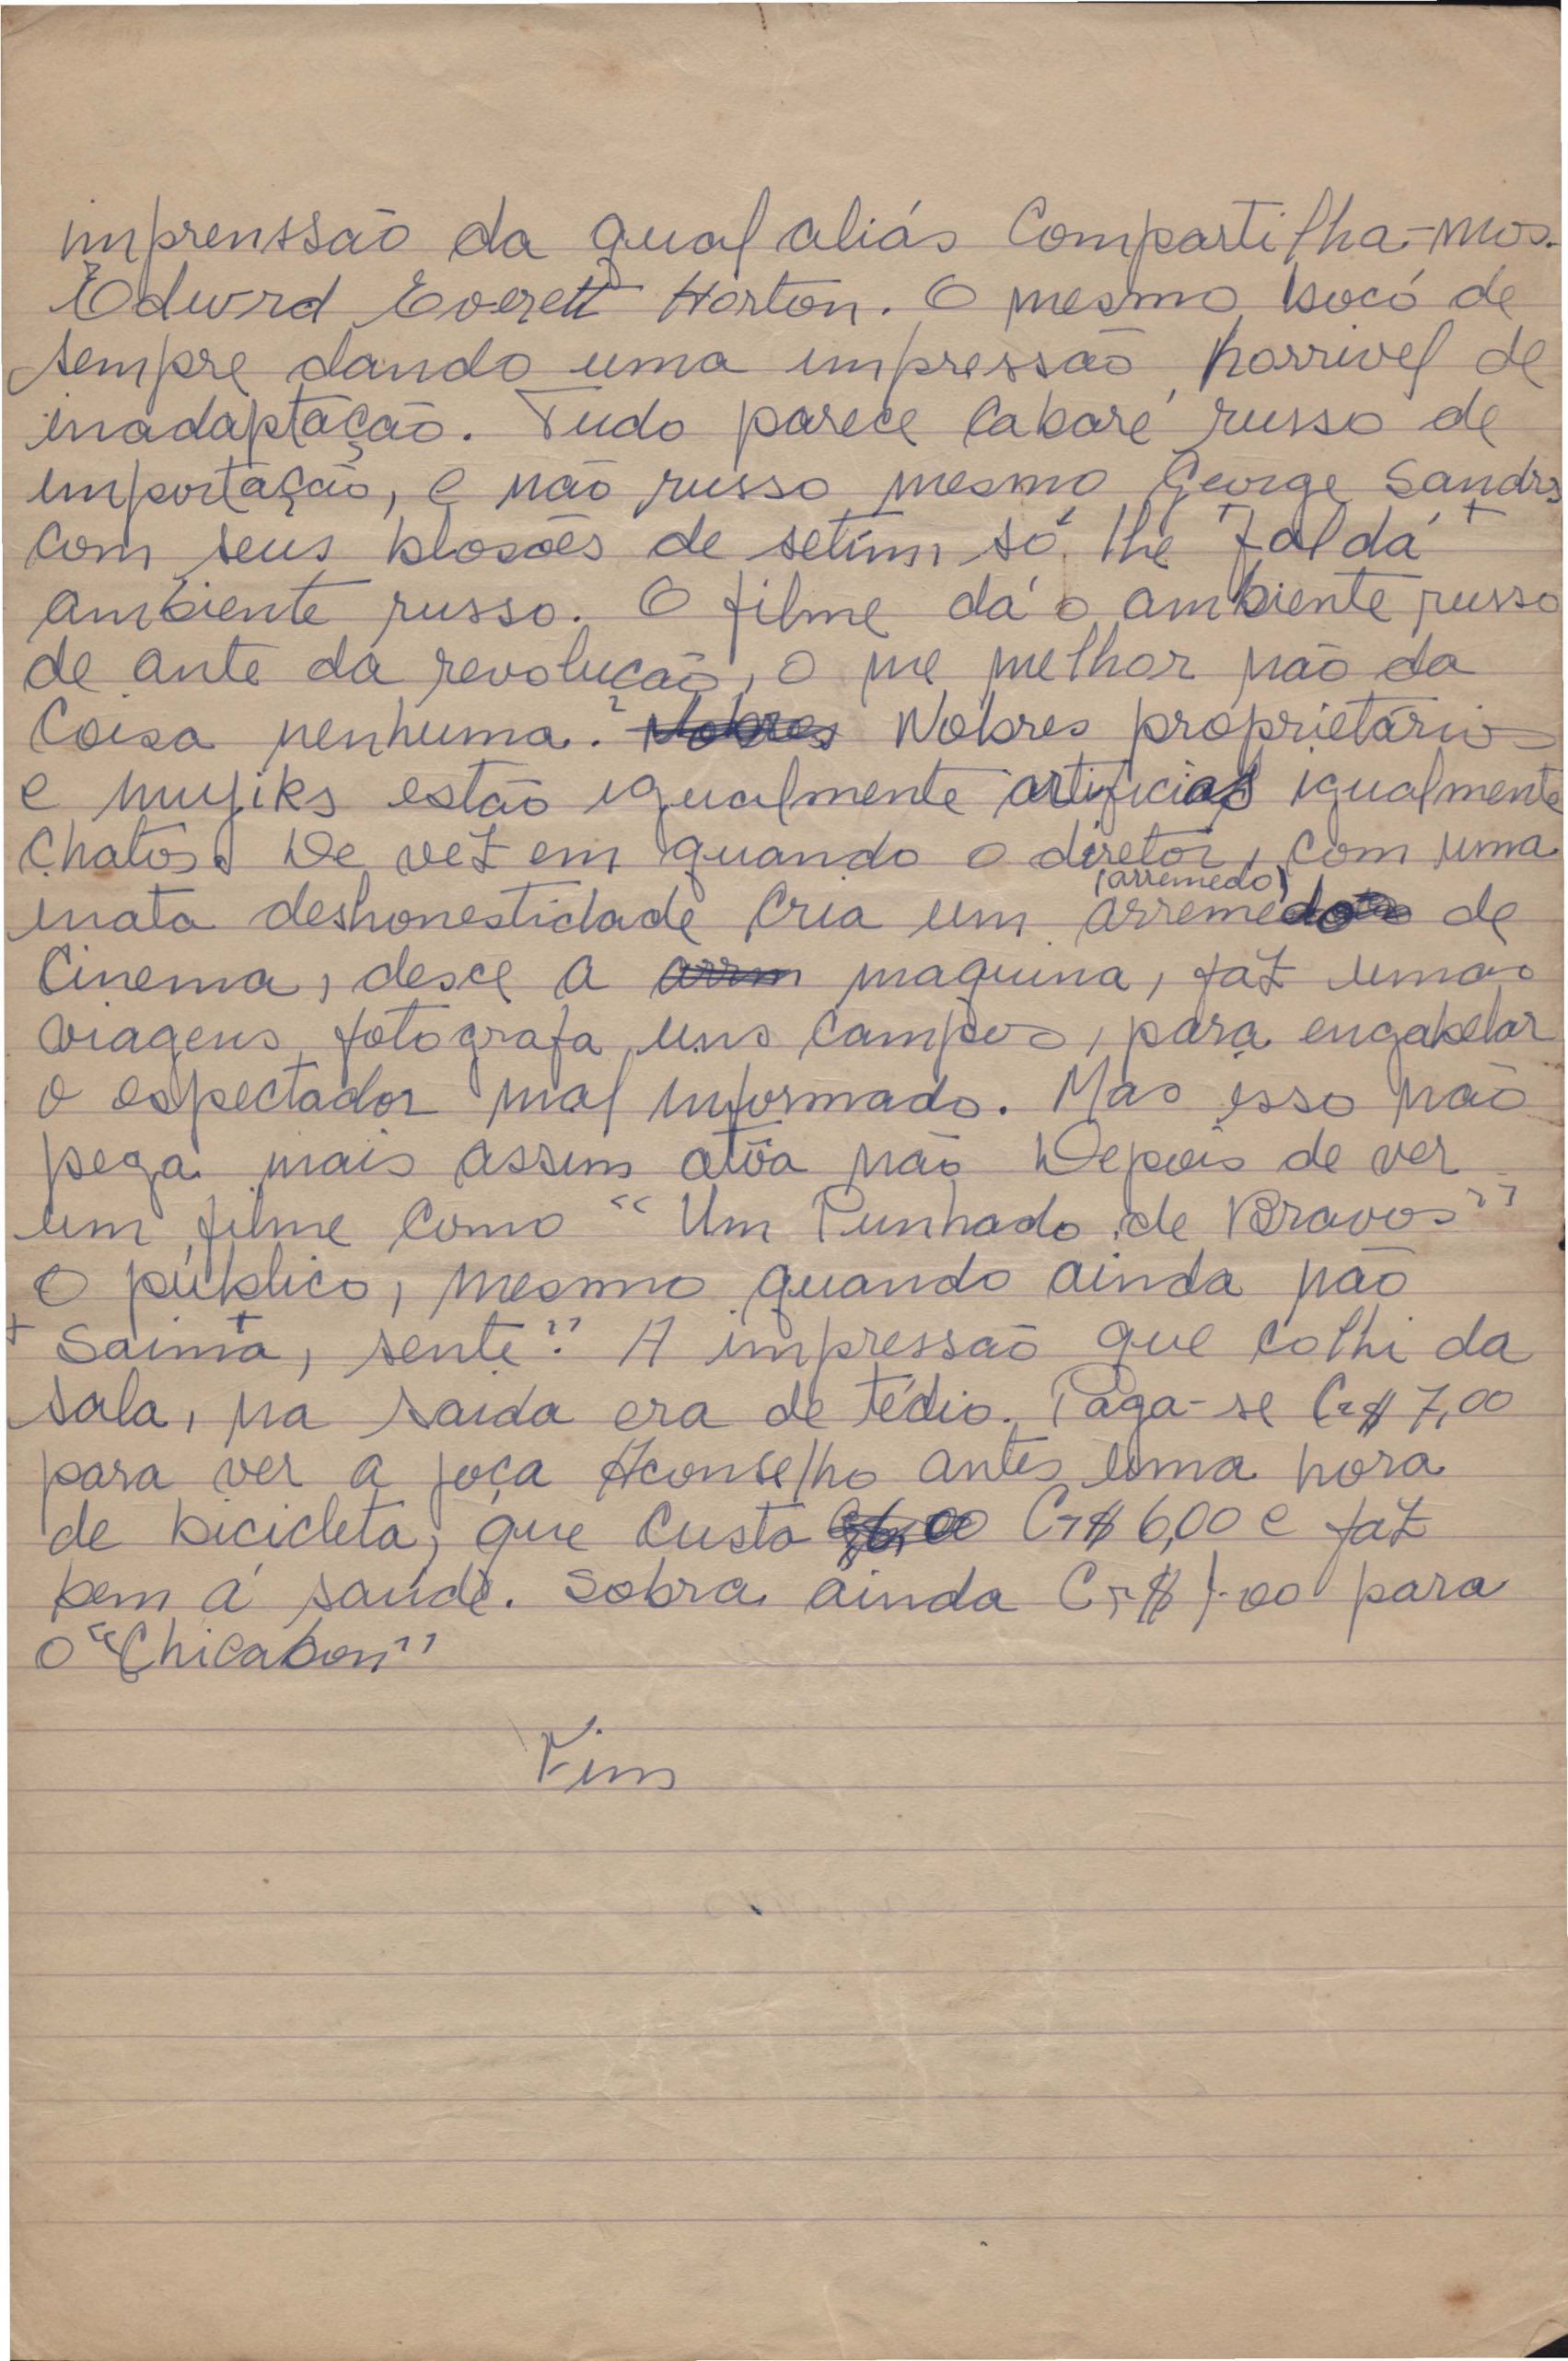 imprenssão da qual aliás compartilha-mos.
Edwrd Everett Horton. O mesmo bocó de
sempre dando uma impressão horrivel de
inadaptação. Tudo parece cabaré russo de
importação, e não russo mesmo George Sandrs
com seus blosões de setim só lhe faldá
ambiente russo. O filme dá o ambiente russo
de ante da revolução, o me melhor não da
coisa nenhuma. Nobres Nobres proprietários
e mujiks estão igualmente artificias igualmente
chatos. De vez em quando o diretor, com uma
inata deshonestidade cria um (arremedo) arremedo de
cinema, desce a arrm maquina, faz umas
viagens fotografa uns campos, para engabelar
o espectador mal informado. Mas isso não
pega mais assim atôa não Depois de ver
um filme como "Um Punhado de Bravos"
o público, mesmo quando ainda não
+ Saima, sente". A impressão que colhi da
sala, na saida era de tédio. Paga-se Cr$ 7,00
para ver a joça Aconselho antes uma hora
de bicicleta, que custa Cr$ 6,00 e faz
bem á saúde. Sobra ainda Cr$ 1.00 para
o "Chicabon"
Fim